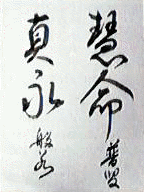 慧命
普賢
真永
般若